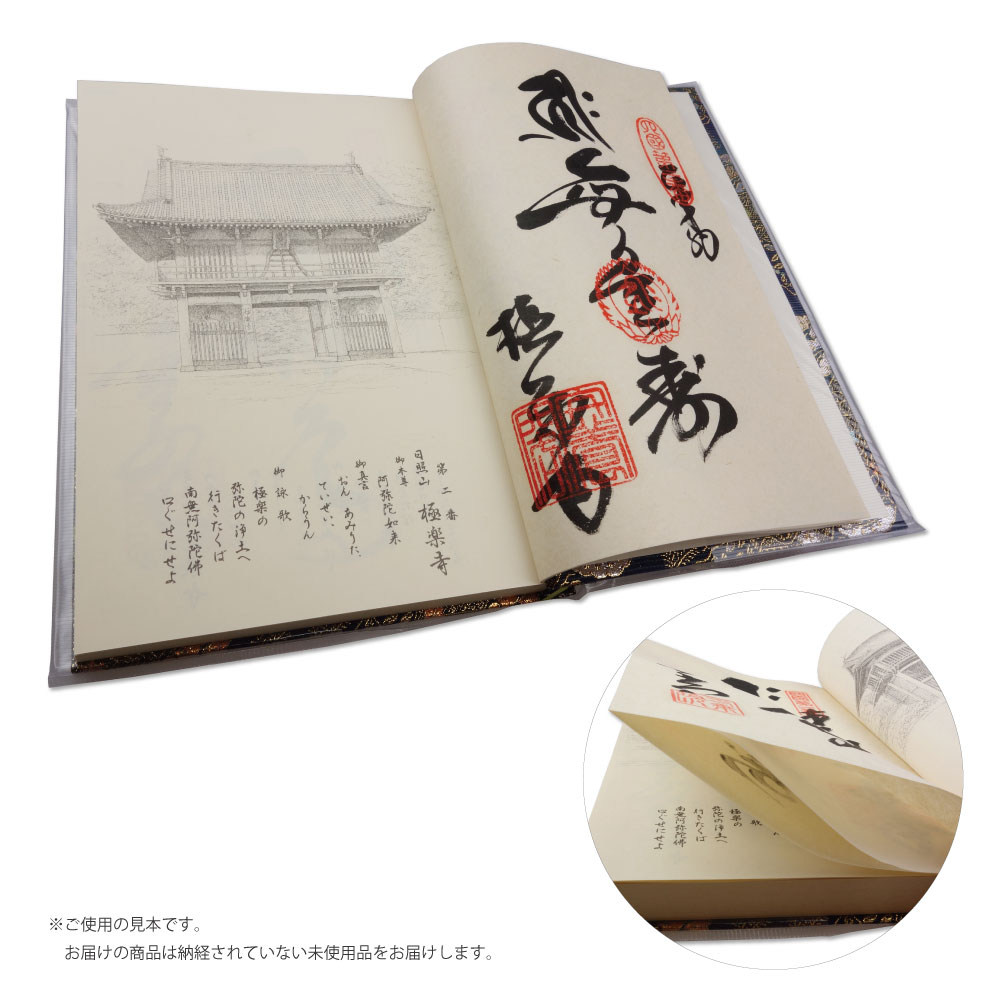 奉納
無量寿
極楽寺
第二番
日照山 極楽寺
御本尊
阿弥陀如来
御真言
おん、あみりた、
ていぜい、
からうん
御詠歌
極楽の
弥陀の浄土へ
行きたくば
南無阿弥陀佛
口ぐせにせよ
歌
極楽の
弥陀の浄土へ
行きたくば
南無阿弥陀佛
口ぐせにせよ
※ご使用の見本です。
お届けの商品は納経されていない未使用品をお届けします。